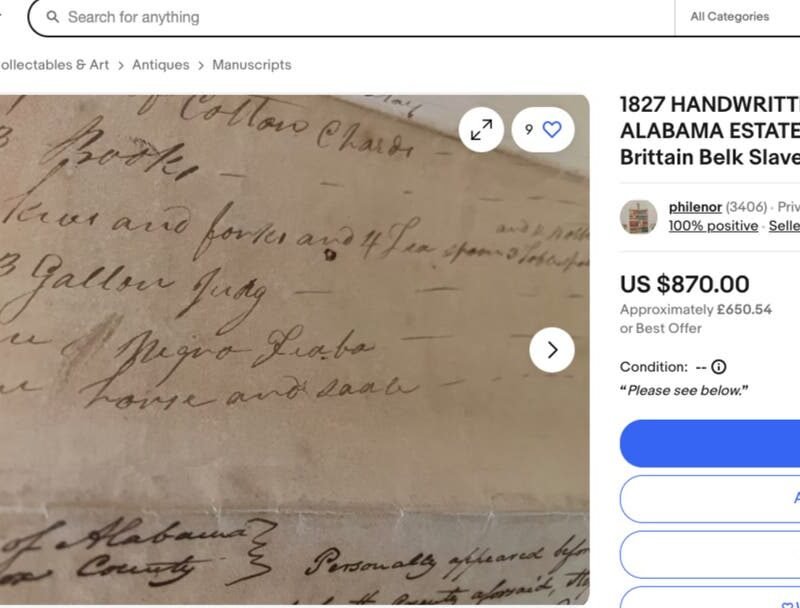 Search for anything
All Categories
ollectables & Art > Antiques > Manuscripts
of Cotton Chards
3 Books
9
1827 HANDWRITT
ALABAMA ESTATE
Brittain Belk Slave
philenor (3406) · Priv
100% positive · Selle
and forks and 4 Tea spoons
3 Gallon Jugg
US $870.00
Approximately £650.54
or Best Offer
Negro
horse and
Condition: --
“Please see below.”
A
of Alabama
County
Personally appeared befor
County aforesaid,